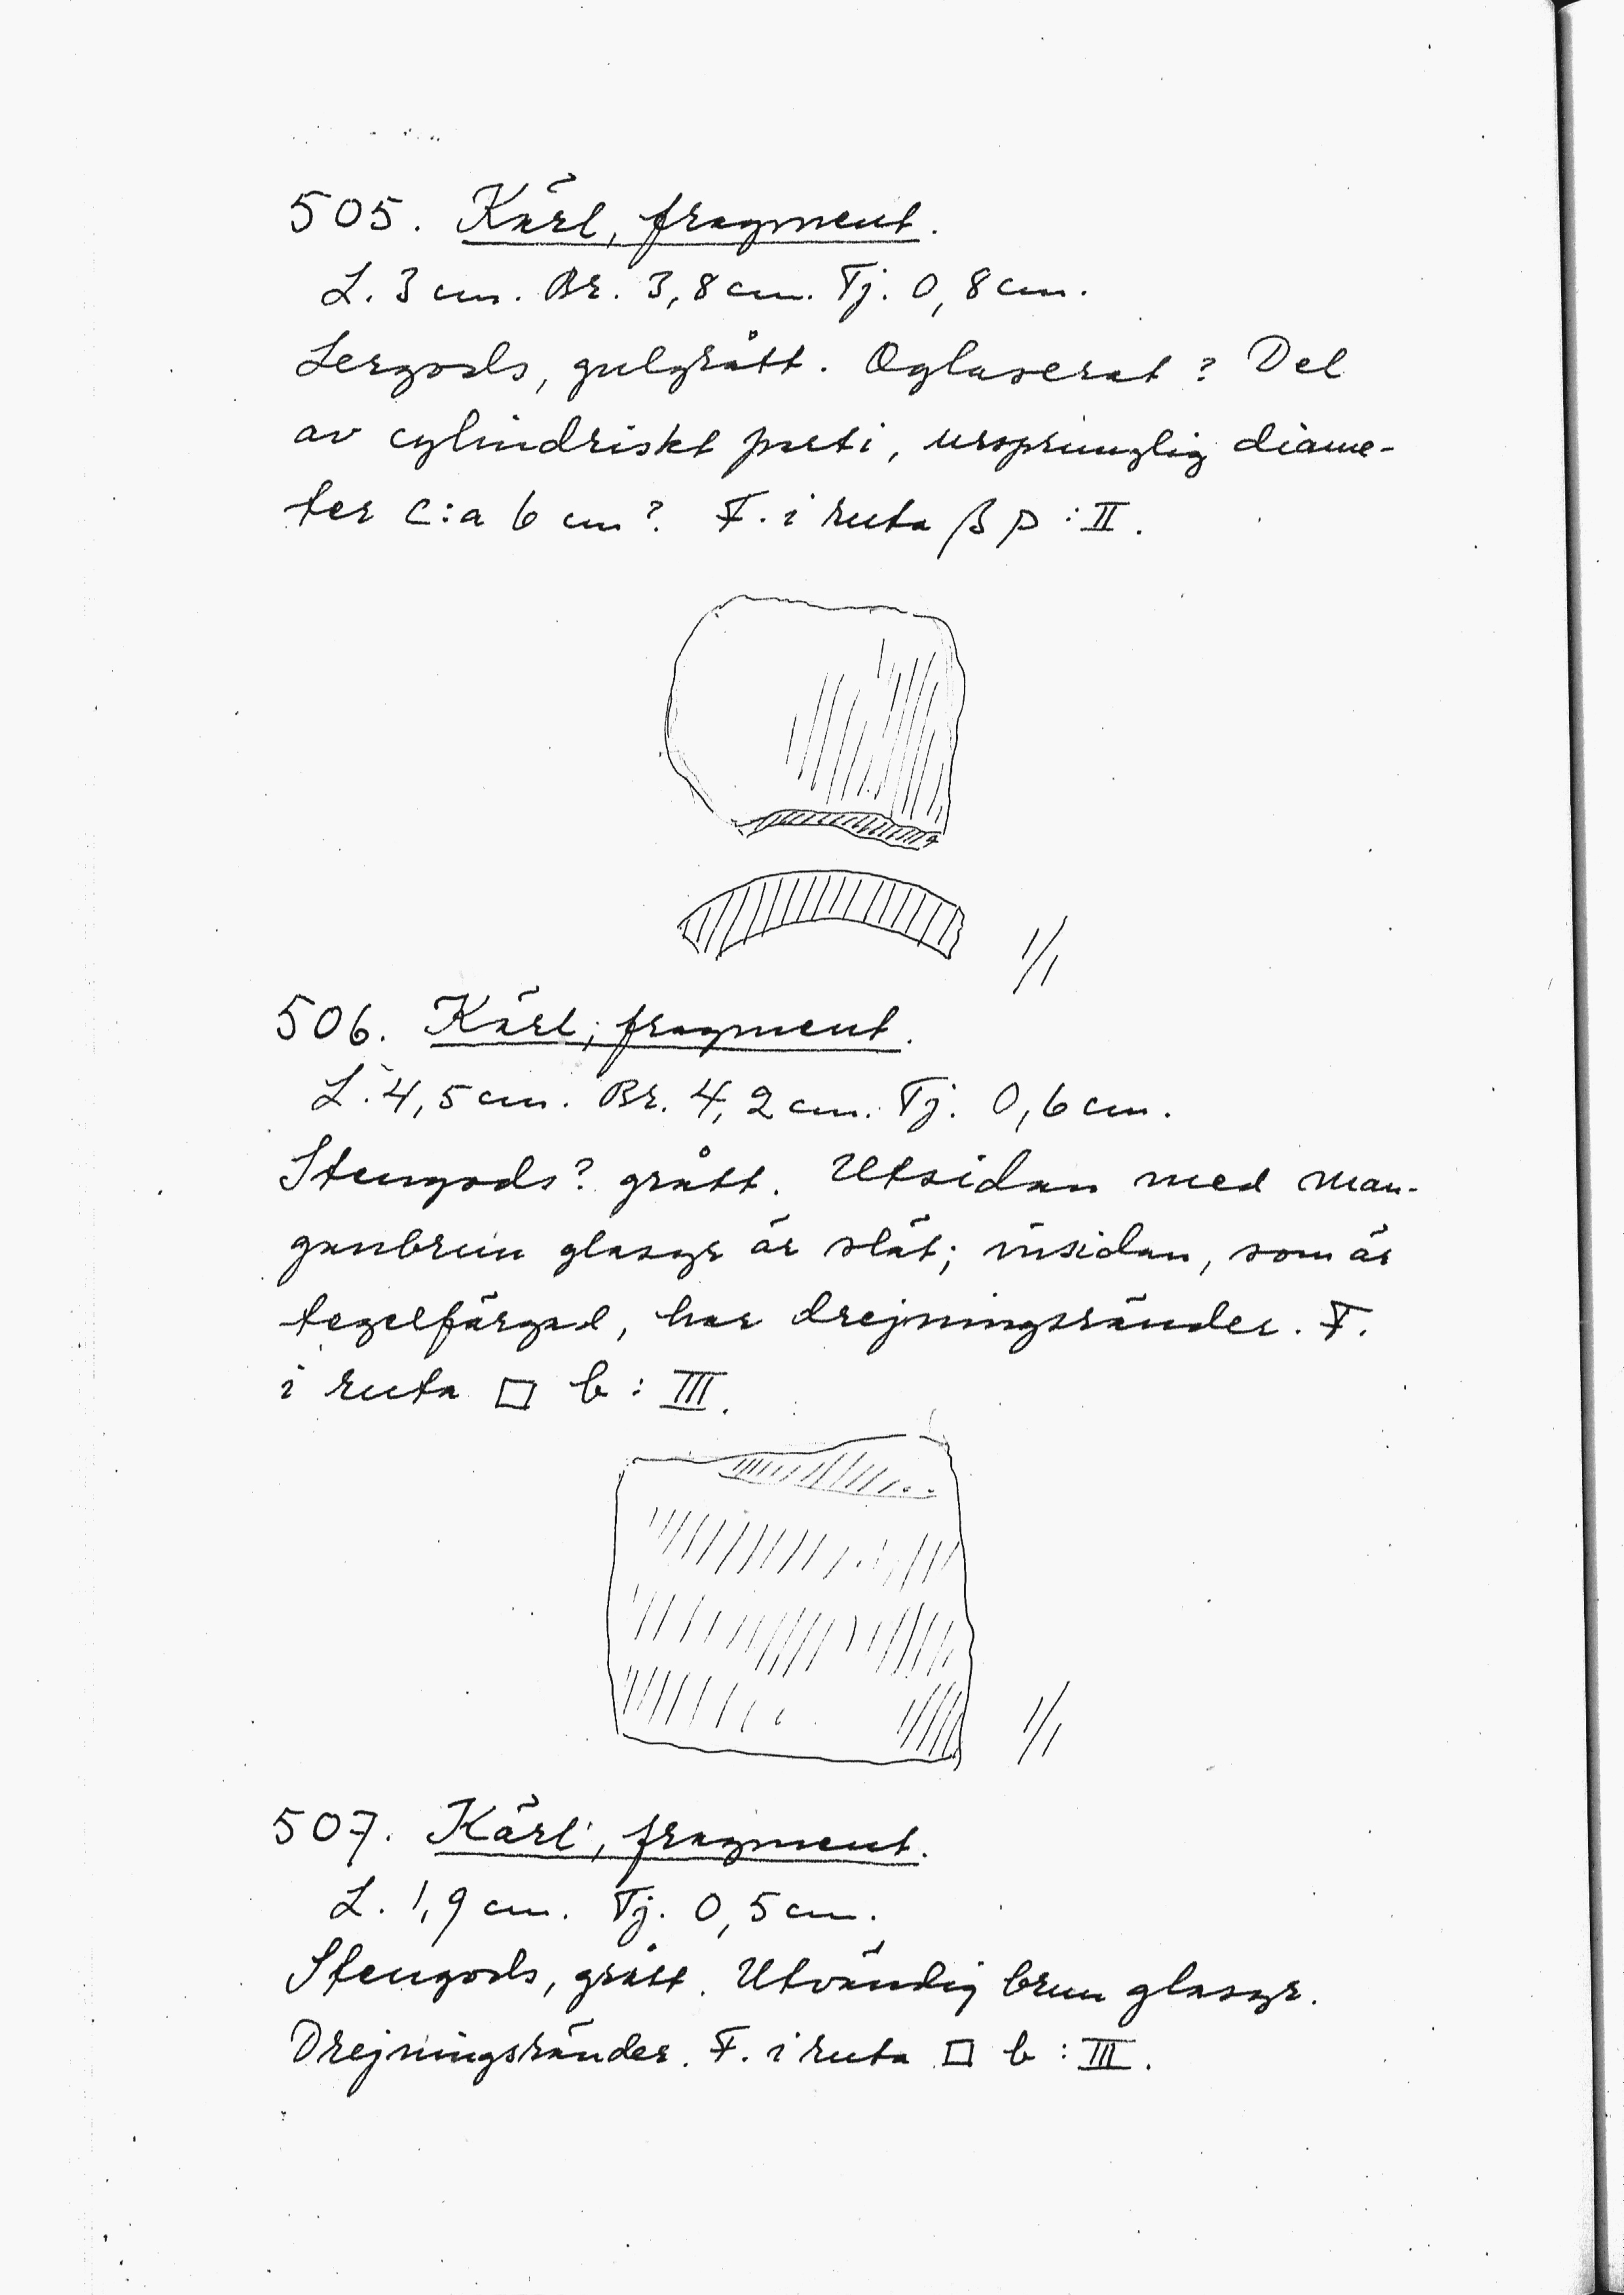 505. Kärl, fragment.
L. 3 cm. Br. 3,8 cm. Tj. 0,8 cm.
Lergods, gulgrått. Oglaserat? Del
av cylindriskt parti, ursprunglig diame-
ter c:a 6 cm? F. i ruta β p : II.
1/1
506. Kärl, fragment.
L. 4,5 cm. Br. 4,2 cm. Tj. 0,6 cm.
Stengods? grått. Utsidan med man-
ganbrun glasyr är slät; insidan, som är
tegelfärgad, har drejningsränder. F.
i ruta □ b : III.
1/1
507. Kärl, fragment.
L. 1,9 cm. Tj. 0,5 cm.
Stengods, grått. Utvändig brun glasyr.
Drejningsränder. F. i ruta □ b : III.